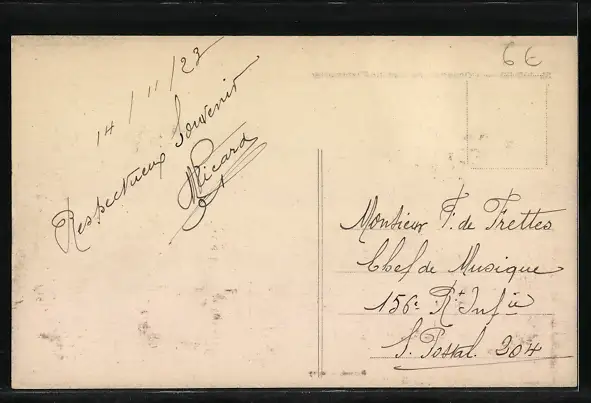 14/11/23
Respectueux Souvenir
Ricard
6€
Monsieur F. de Frettes
Chef de Musique
156e Rt Infie
S. Postal. 304